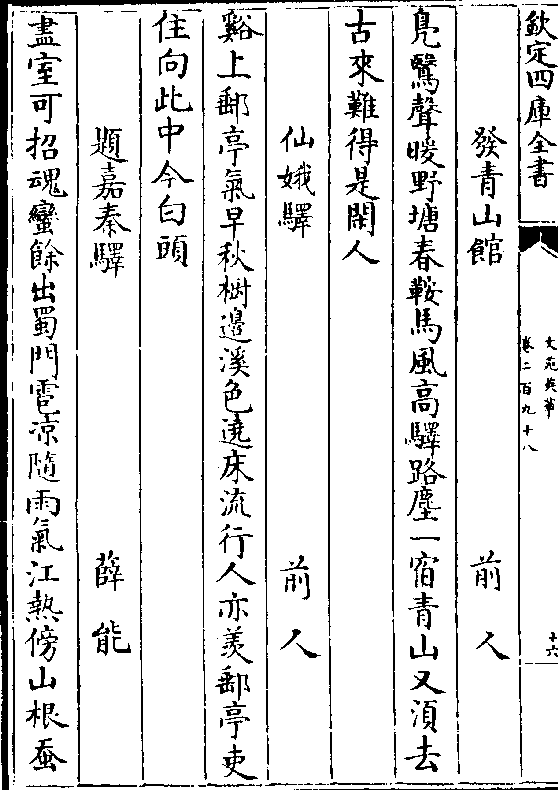 欽定四庫全書
文苑英華
卷二百九十八
十六
發青山館　前人
鳬鷖聲暖野塘春鞍馬風高驛路塵一宿青山又須去
古來難得是閒人
仙娥驛　前人
谿上郵亭氣早秋樹邉溪色遶床流行人亦羨郵亭吏
住向此中今白頭
題嘉秦驛　薛能
盡室可招魂蠻餘出蜀門雹凉隨雨氣江熱傍山根蚕